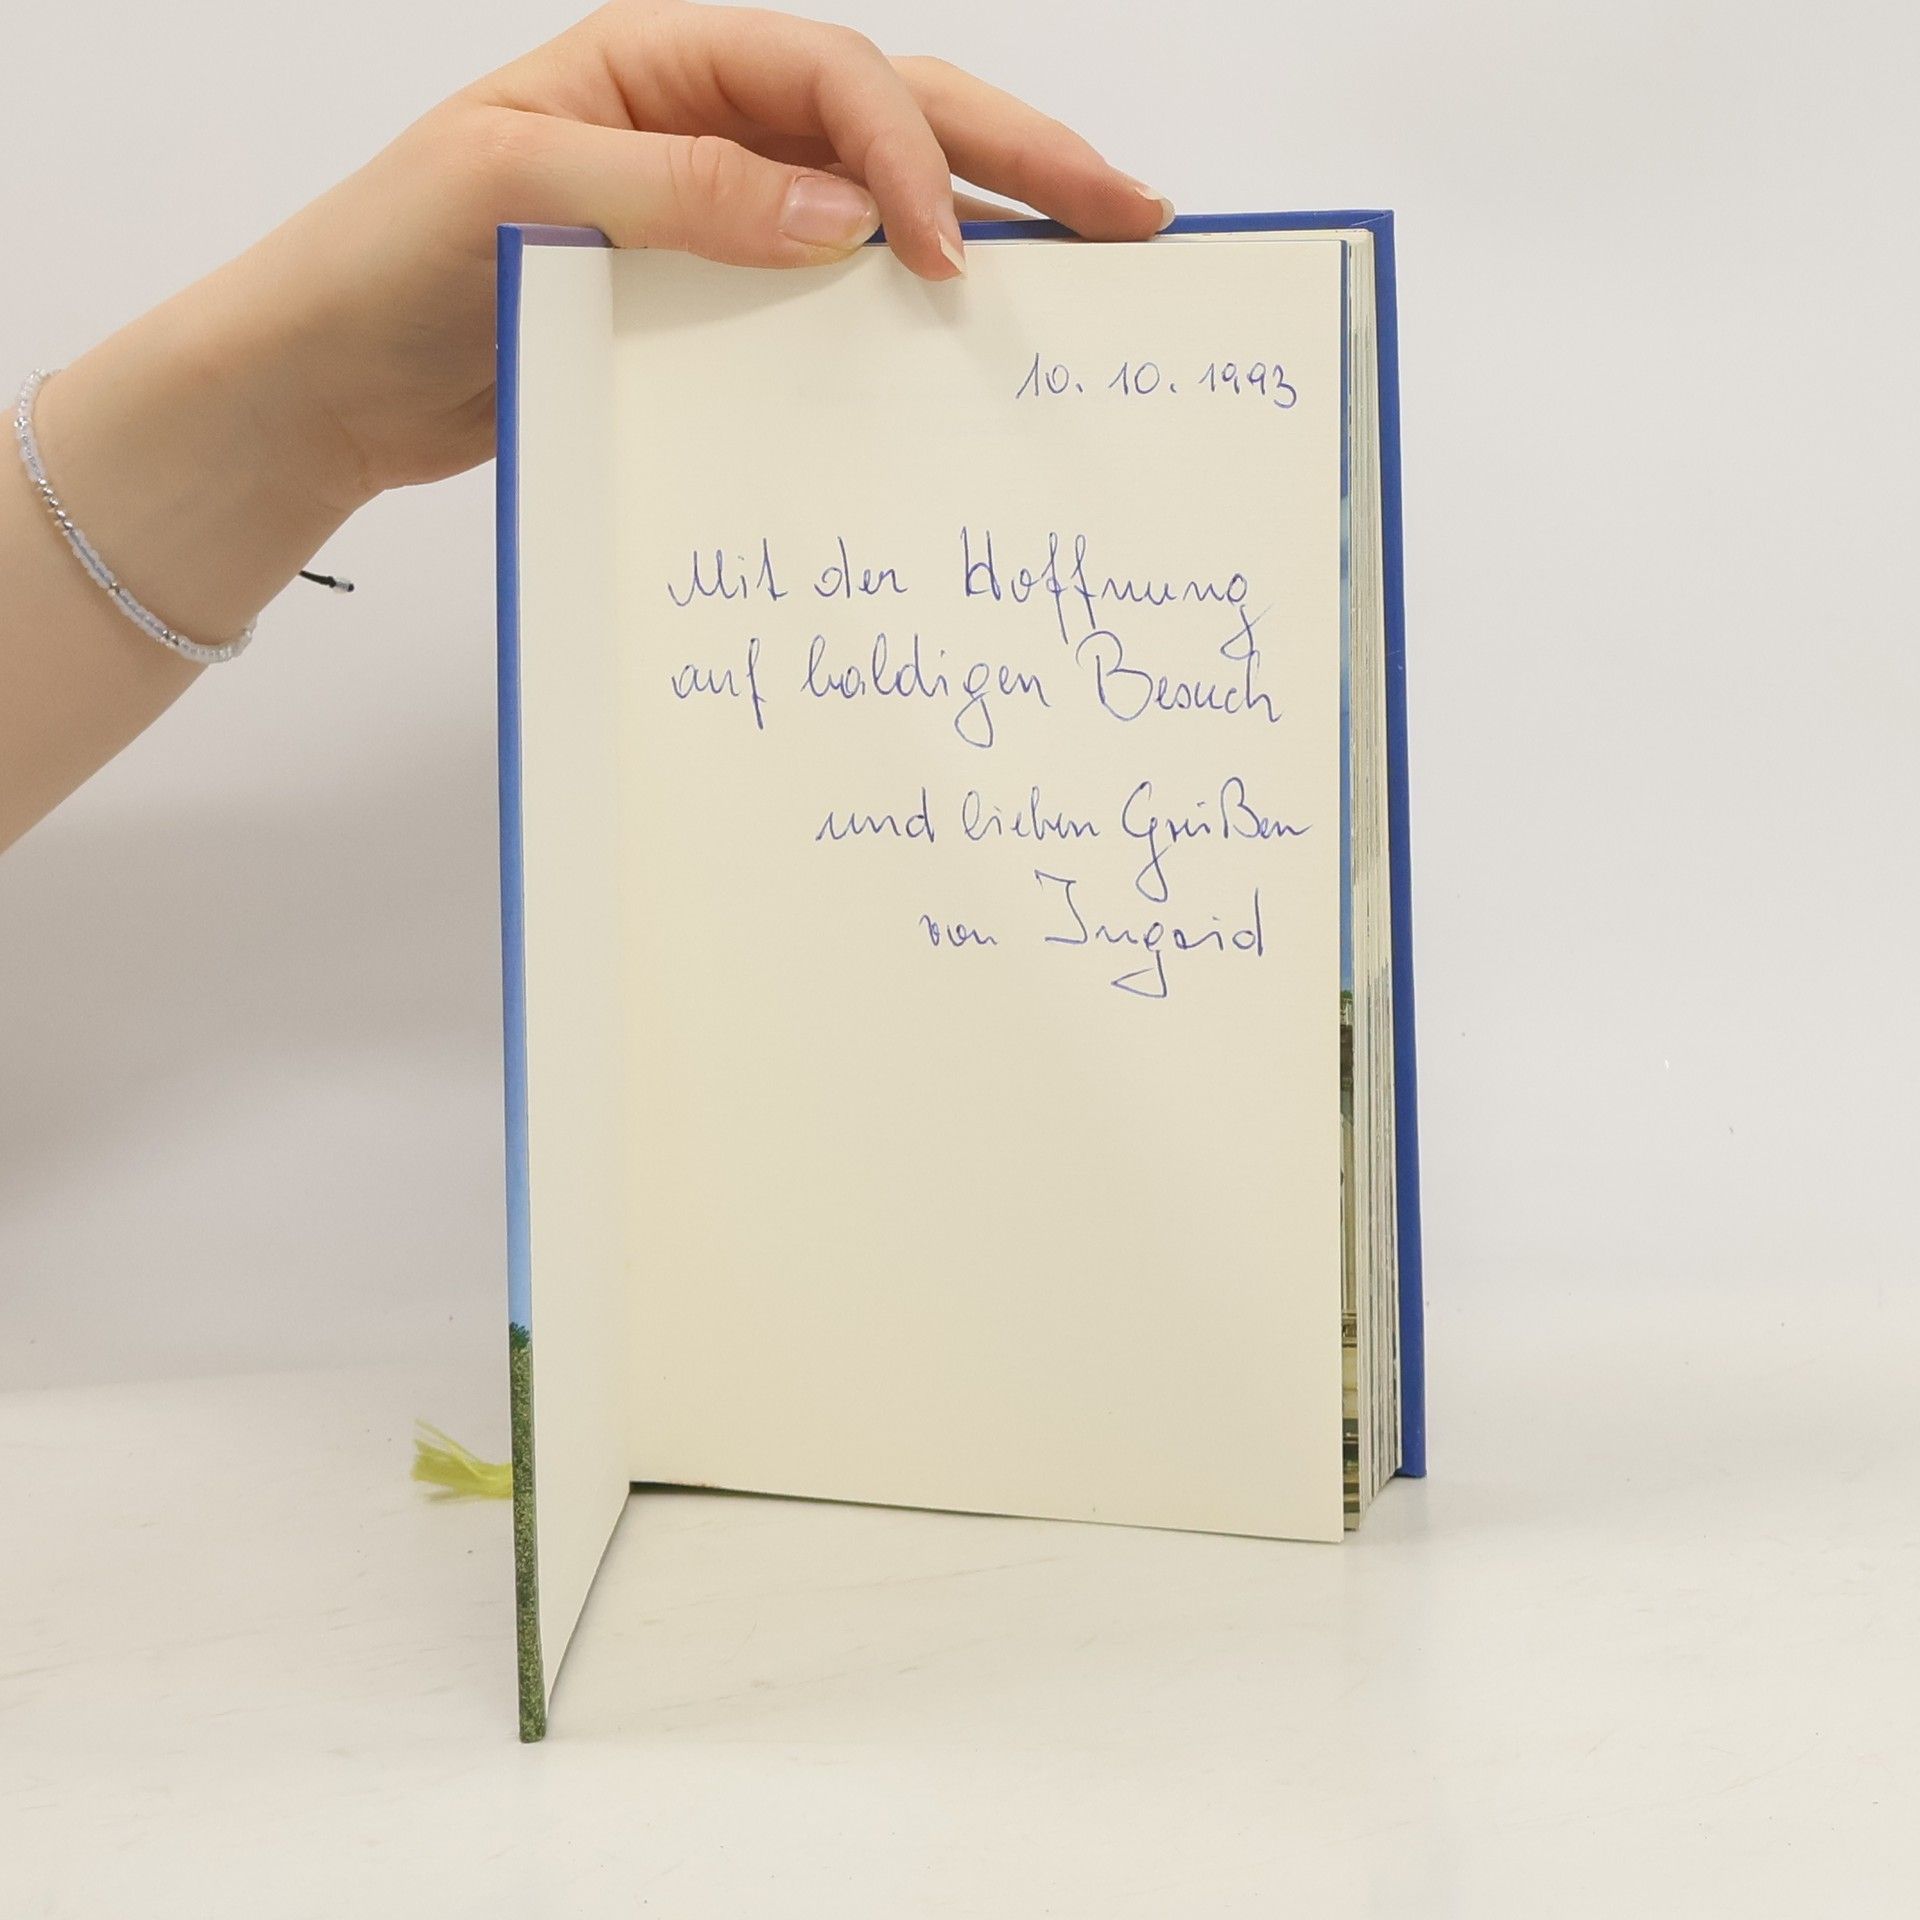 10. 10. 1993
Mit der Hoffnung
auf baldigen Besuch
und lieben Grüßen
von Ingrid